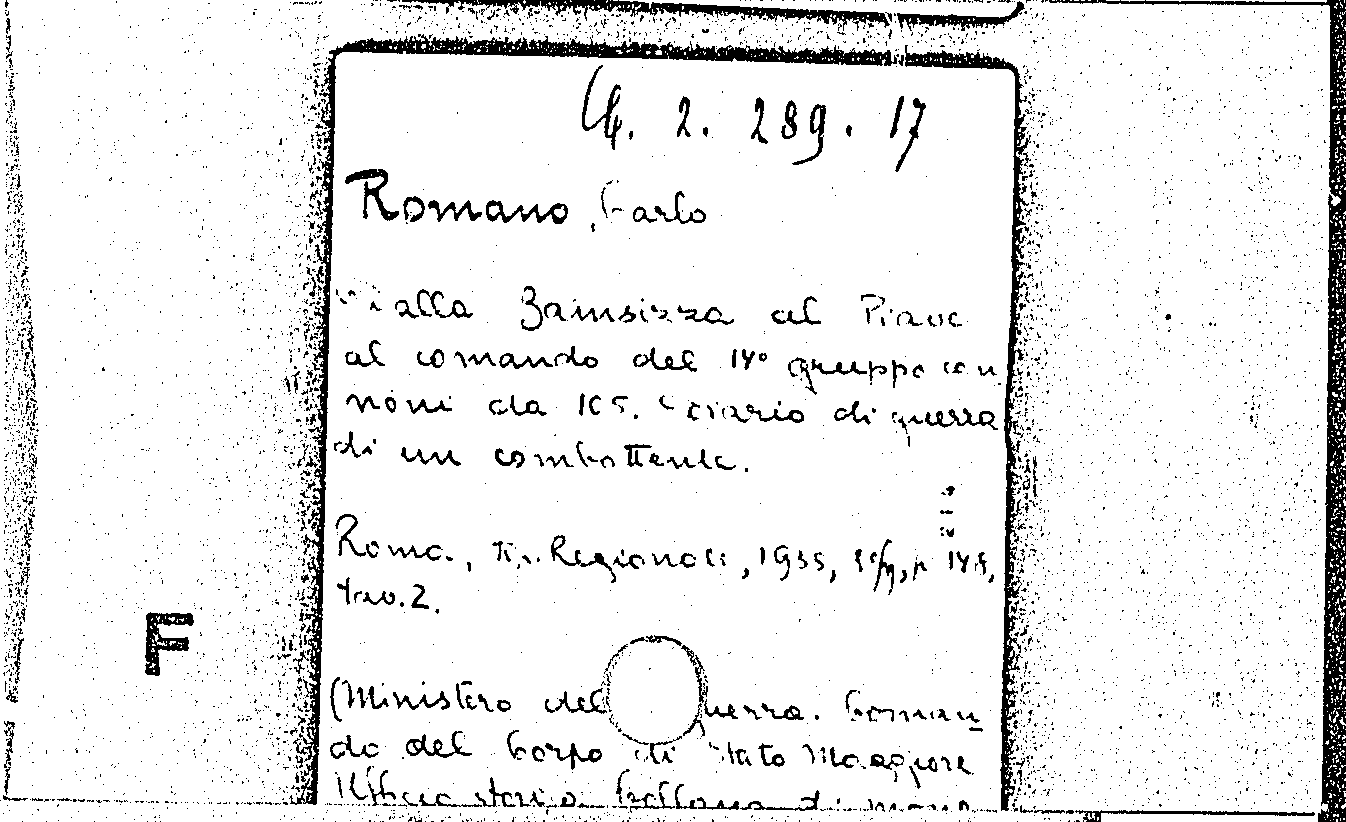 M. 2. 289. 17
Romano, Carlo
Dalla Bainsizza al Piave
al comando del 14º gruppo can
noni da 105. diario di guerra
di un combattente.
Roma, Tip. Regionale, 1935, p 145,
tav. 2.
F
(Ministero del uerra. Coman
do del Corpo di Stato Maggiore
Ufficio storico. Collana di mono